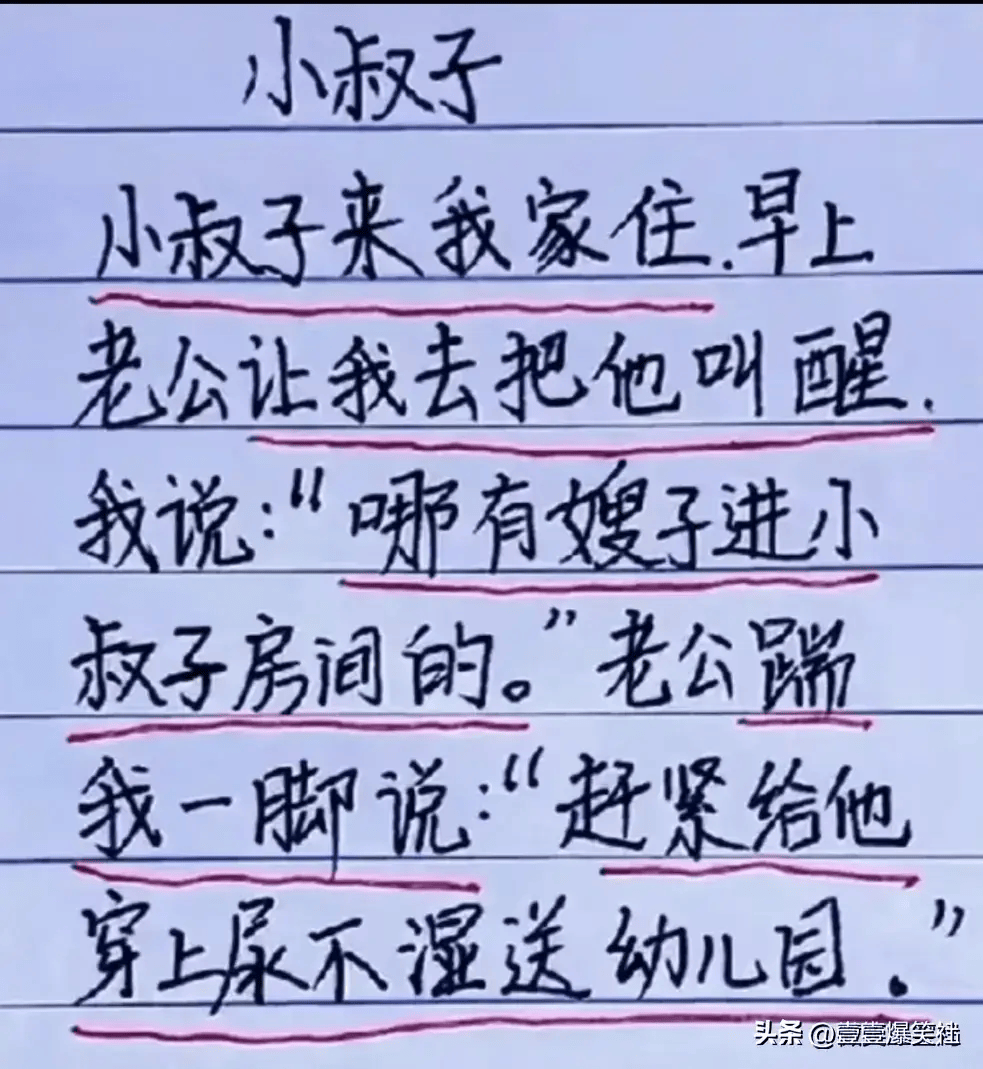 小叔子
小叔子来我家住.早上
老公让我去把他叫醒.
我说:“哪有嫂子进小
叔子房间的。”老公踹
我一脚说:“赶紧给他
穿上尿不湿送幼儿园.”
头条 @壹壹爆笑社